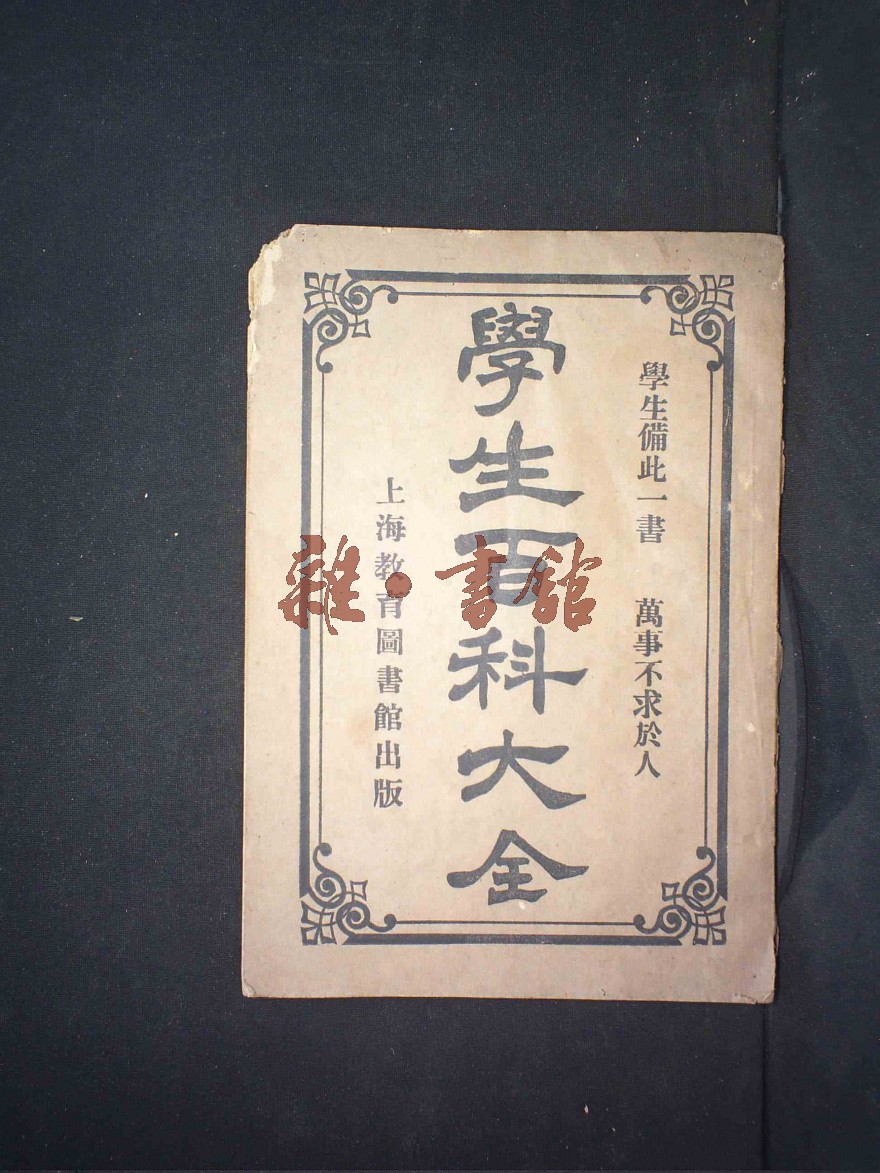 學生備此一書 萬事不求於人
學生百科大全
上海教育圖書館出版
雜·書館